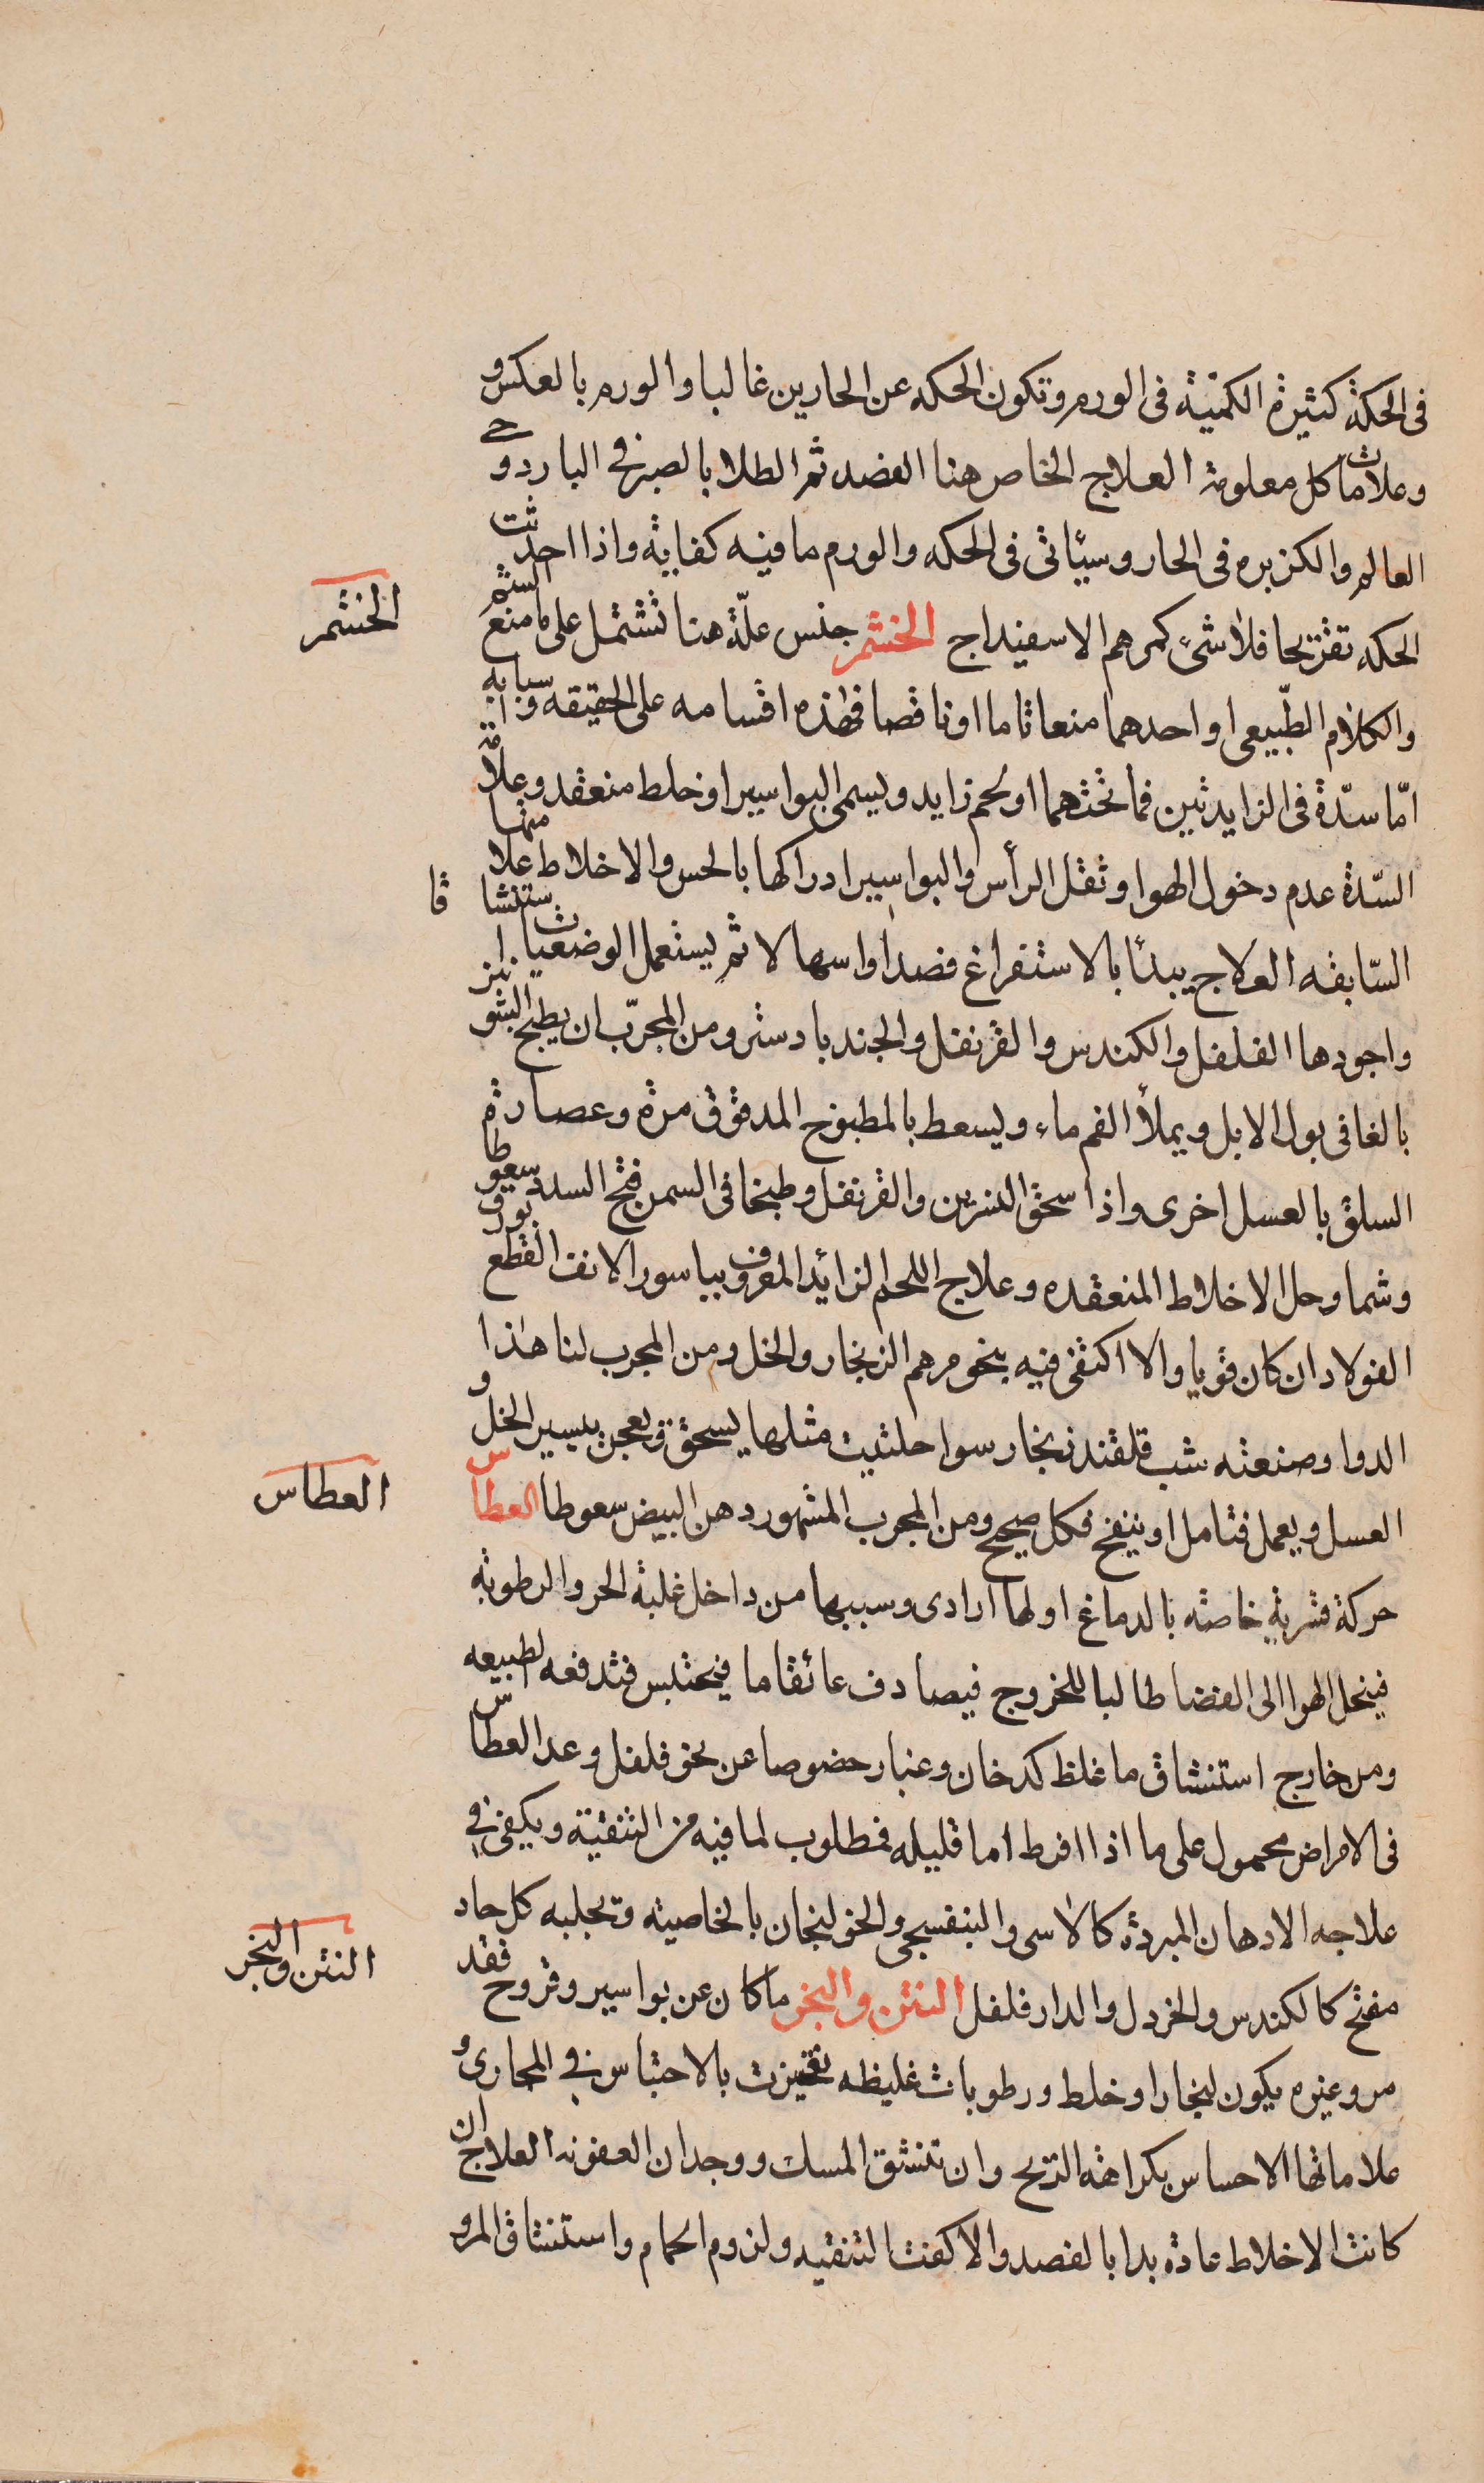 فى الحكة كثيرة الكميّة فى الورم وتكون الحكه عن الحارين غالبا والورم بالعكس و
وعلامات كل معلومة العلاج الخاص هنا الفصد ثم الطلا بالصبر فى البارد وحى
العالم والكزبره فى الحار وسيئاتى فى الحكه والورم ما فيه كفاية واذا احدثت
الحكه تقريحا فلا شىء كمرهم الاسفيداج الخشم جنس علّة هنا تشتمل على ما منع الشم
الخشم
والكلام الطّبيعى او احدهما منعا تاما او ناقصا فهذه اقسامه على الحقيقه واسبابه
امّا سدّة فى الزايدتين فما تحتهما او لحم زايد ويسمى البواسير او خلط منعقد وعلامة
السّدة عدم دخول الهوا وثقل الرأس والبواسير ادراكها بالحس والاخلاط علا متها
السّابقه العلاج يبدئا بالاستفراغ فصدا واسهالا ثم يستعمل الوضعيات استنشاقا
واجودها الفلفل والكندس والقرنفل والجندبادستر ومن المجرّب ان يطبخ الشونيز
بالغا فى بول الابل ويملأ الفم ماء ويسعط بالمطبوخ المدقوق مرة وعصارة
السلق بالعسل اخرى واذا سحق النسرين والقرنفل وطبخا فى السمن فتح السدد سعوطا
وشما وحل الاخلاط المنعقده وعلاج اللحم الزائد المعروف بباسور الانف القطع بورق
الفولاد ان كان قويا والا اكتفى فيه بنحو مرهم الزنجار والخل ومن المجرب لنا هذا
الدوا وصنعته شب قلقند زنجار سوا حلتيت مثلها يسحق ويعجن بيسير الخل و
العسل ويعمل فتامل او ينفخ فكل صحيح ومن المجرب المشهور دهن البيض سعوطا العطاس
العطاس
حركة قشرية خاصة بالدماغ اولها ارادى وسببها من داخل غلبة الحر والرطوبة
فينحل الهوا الى الفضا طالبا للخروج فيصادف عائقا ما فيحتبس فتدفعه الطبيعه
ومن خارج استنشاق ما غلظ كدخان وغبار خصوصا عن نحو فلفل وعد العطاس
فى الامراض محمول على ما اذا افرط اما قليله فمطلوب لما فيه من التنقية ويكفى فى
علاجه الادهان المبردة كالاسى والبنفسجى والخولنجان بالخاصية وتجلبه كل حاد
مفتح كالكندس والخردل والدار فلفل النتن والبخر ما كان عن بواسير وقروح فقد
النتن والبخر
مر وغيره يكون لبخار او خلط ورطوبات غليظه تحيزت بالاحتباس فى المجارى و
علاماتها الاحساس بكراهة الريح وان تنشق المسك ووجدان العفونه العلاج ان
كانت الاخلاط حادة بدا بالفصد والا كفت التنقيه ولزوم الحمام واستنشاق المرو